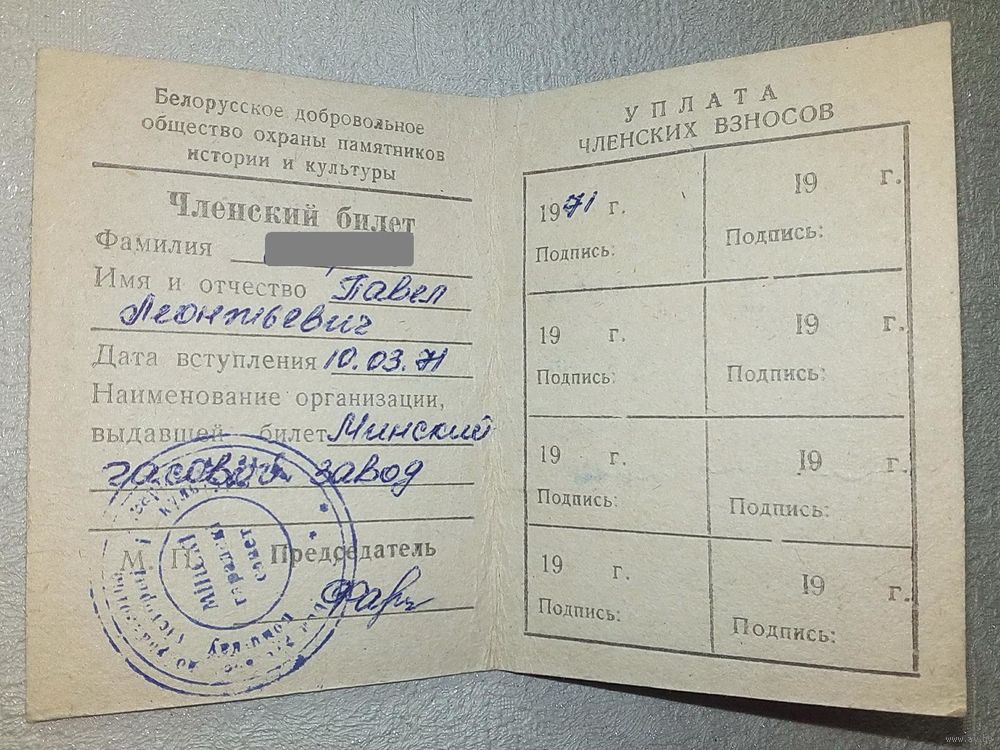 Белорусское добровольное
общество охраны памятников
истории и культуры
Членский билет
Фамилия
Имя и отчество Павел
Леонтьевич
Дата вступления 10.03.71
Наименование организации,
выдавшей билет Минский
часовой завод
М. П. Председатель
Мінскі
гарадскі
савет
УПЛАТА
ЧЛЕНСКИХ ВЗНОСОВ
1971 г.
Подпись:
19 г.
Подпись:
19 г.
Подпись:
19 г.
Подпись:
19 г.
Подпись:
19 г.
Подпись:
19 г.
Подпись:
19 г.
Подпись: